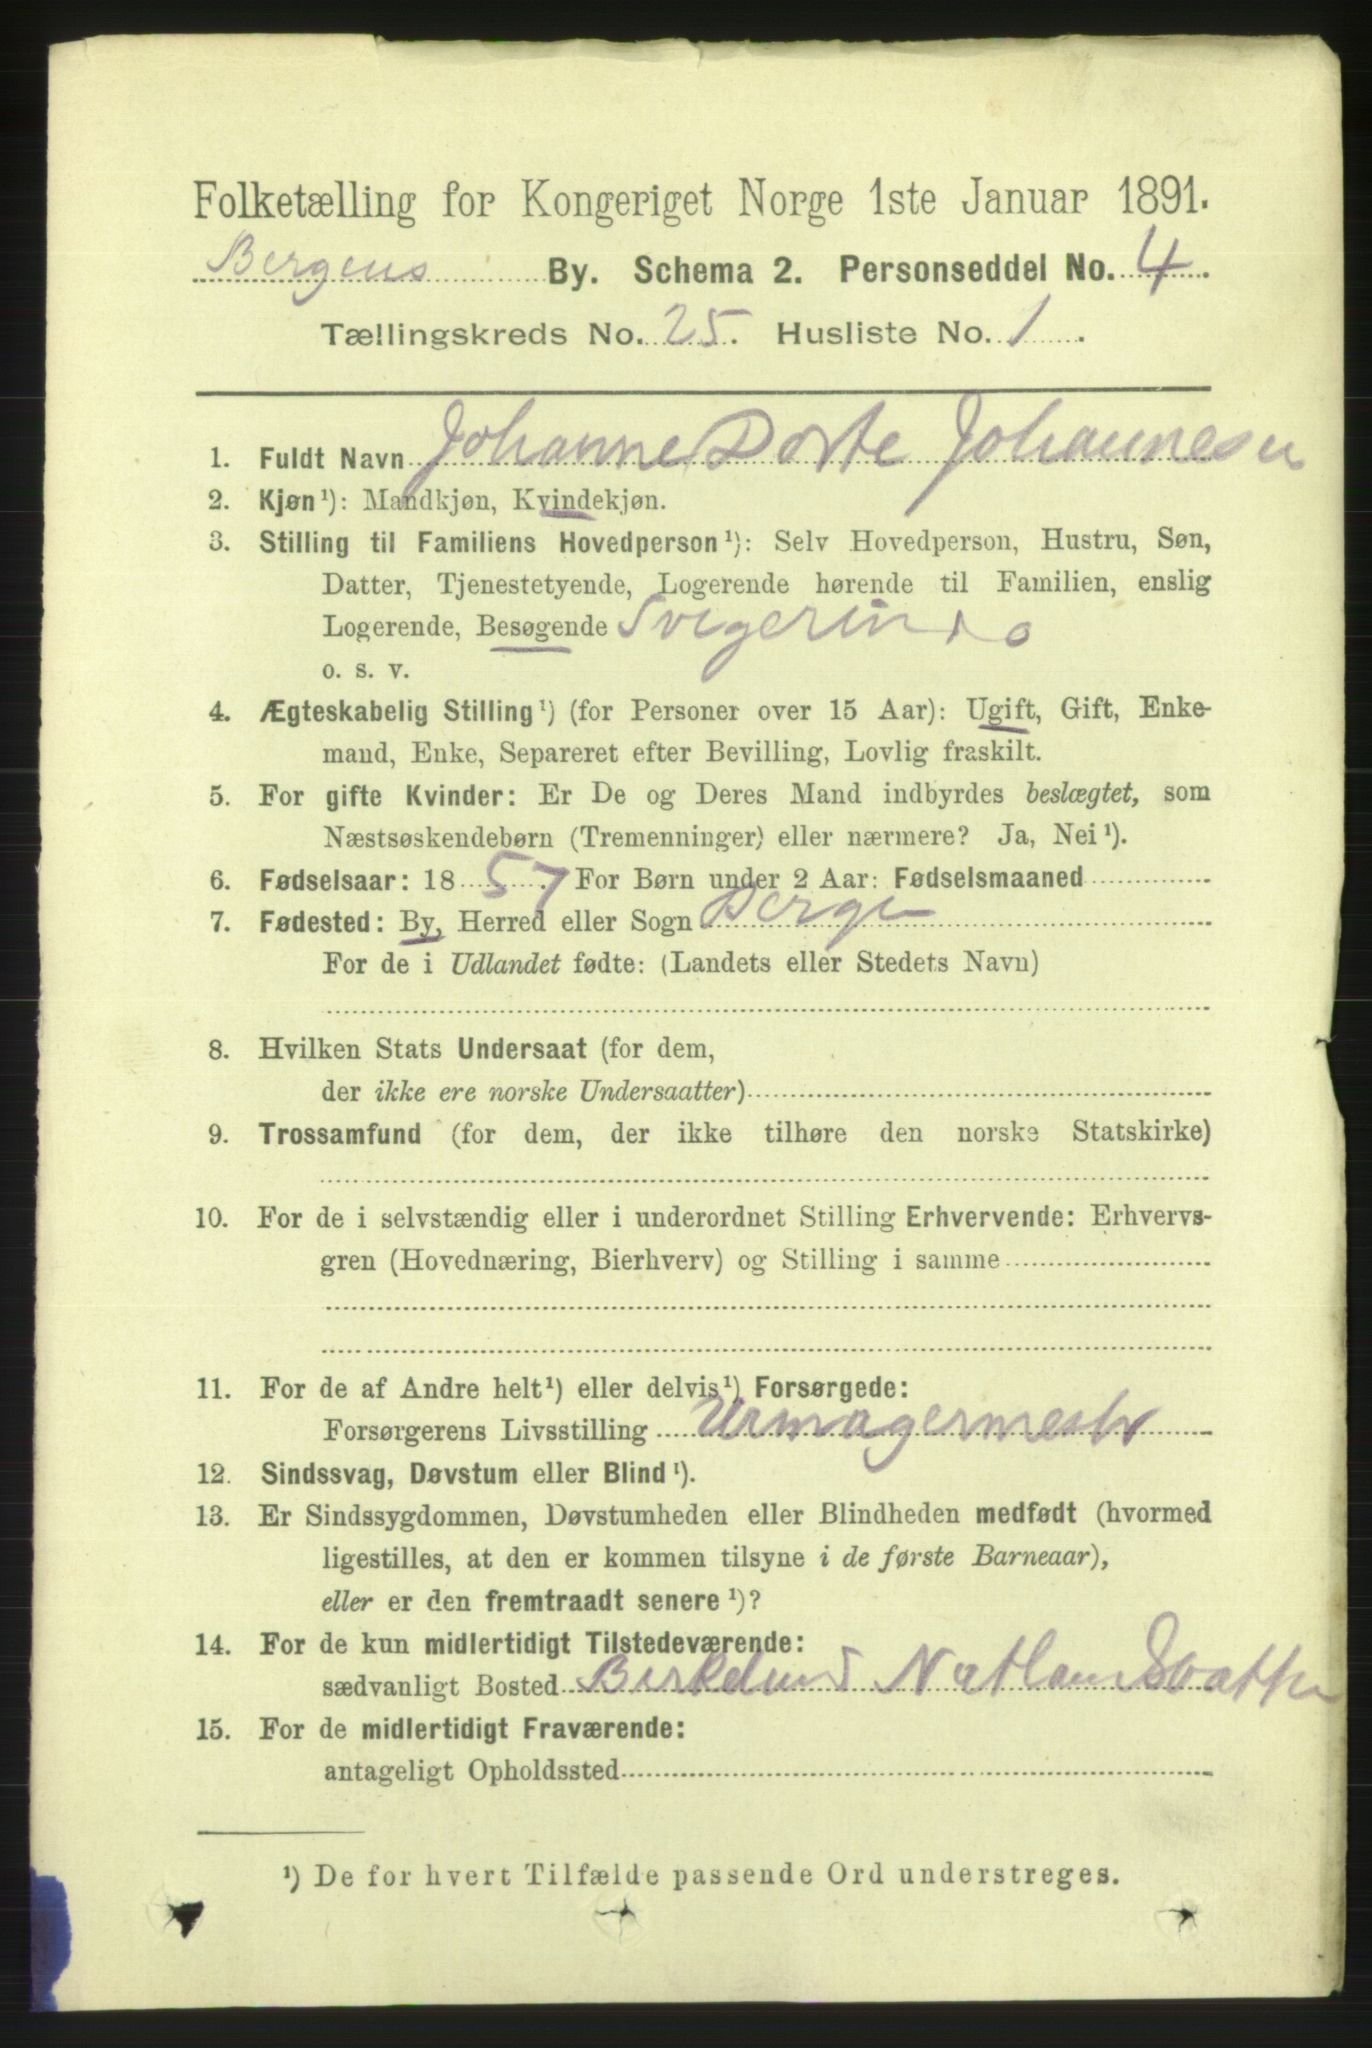 Folketælling for Kongeriget Norge 1ste Januar 1891.
Bergens By. Schema 2. Personseddel No. 4.
Tællingskreds No. 25. Husliste No. 1.
1. Fuldt Navn Johanne Dorte Johannesen
2. Kjøn¹): Mandkjøn, Kvindekjøn.
3. Stilling til Familiens Hovedperson¹): Selv Hovedperson, Hustru, Søn,
Datter, Tjenestetyende, Logerende hørende til Familien, enslig
Logerende, Besøgende Svigerinde
o. s. v.
4. Ægteskabelig Stilling¹) (for Personer over 15 Aar): Ugift, Gift, Enke-
mand, Enke, Separeret efter Bevilling, Lovlig fraskilt.
5. For gifte Kvinder: Er De og Deres Mand indbyrdes beslægtet, som
Næstsøskendebørn (Tremenninger) eller nærmere? Ja, Nei¹).
6. Fødselsaar: 1857. For Børn under 2 Aar: Fødselsmaaned
7. Fødested: By, Herred eller Sogn Bergen
For de i Udlandet fødte: (Landets eller Stedets Navn)
8. Hvilken Stats Undersaat (for dem,
der ikke ere norske Undersaatter)
9. Trossamfund (for dem, der ikke tilhøre den norske Statskirke)
10. For de i selvstændig eller i underordnet Stilling Erhvervende: Erhvervs-
gren (Hovednæring, Bierhverv) og Stilling i samme
11. For de af Andre helt¹) eller delvis¹) Forsørgede:
Forsørgerens Livsstilling Urmagermester
12. Sindssvag, Døvstum eller Blind¹).
13. Er Sindssygdommen, Døvstumheden eller Blindheden medfødt (hvormed
ligestilles, at den er kommen tilsyne i de første Barneaar),
eller er den fremtraadt senere¹)?
14. For de kun midlertidigt Tilstedeværende:
sædvanligt Bosted Birkelund
15. For de midlertidigt Fraværende:
antageligt Opholdssted
¹) De for hvert Tilfælde passende Ord understreges.